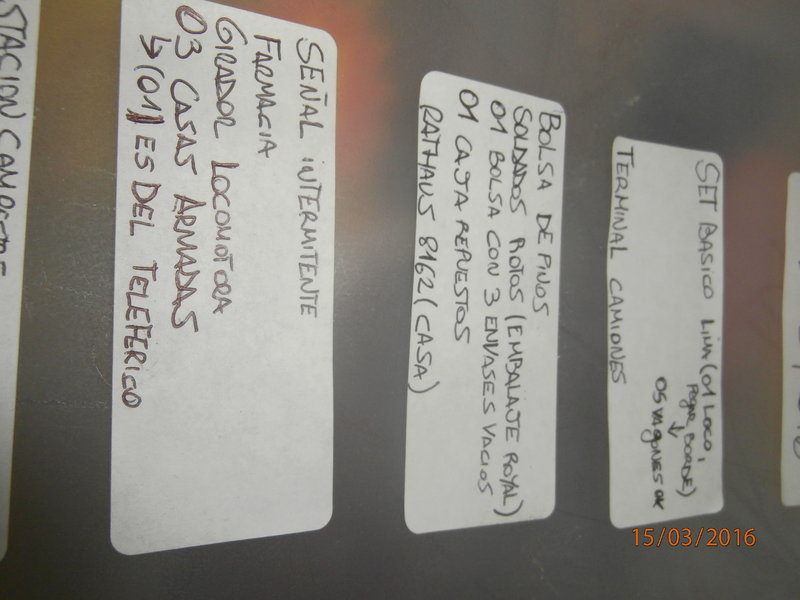 SET BASICO LIMA (01 LOCO,
PEGAR BORDE)
05 VAGONES OK
TERMINAL CAMIONES
BOLSA DE PINOS
SOLDADOS ROTOS (EMBALAJE ROYAL)
01 BOLSA CON 3 ENVASES VACIOS
01 CAJA REPUESTOS
RATHAUS 8162 (CASA)
SEÑAL INTERMITENTE
FARMACIA
GIRADOR LOCOMOTORA
03 CASAS ARMADAS
↳(01) ES DEL TELEFERICO
15/03/2016